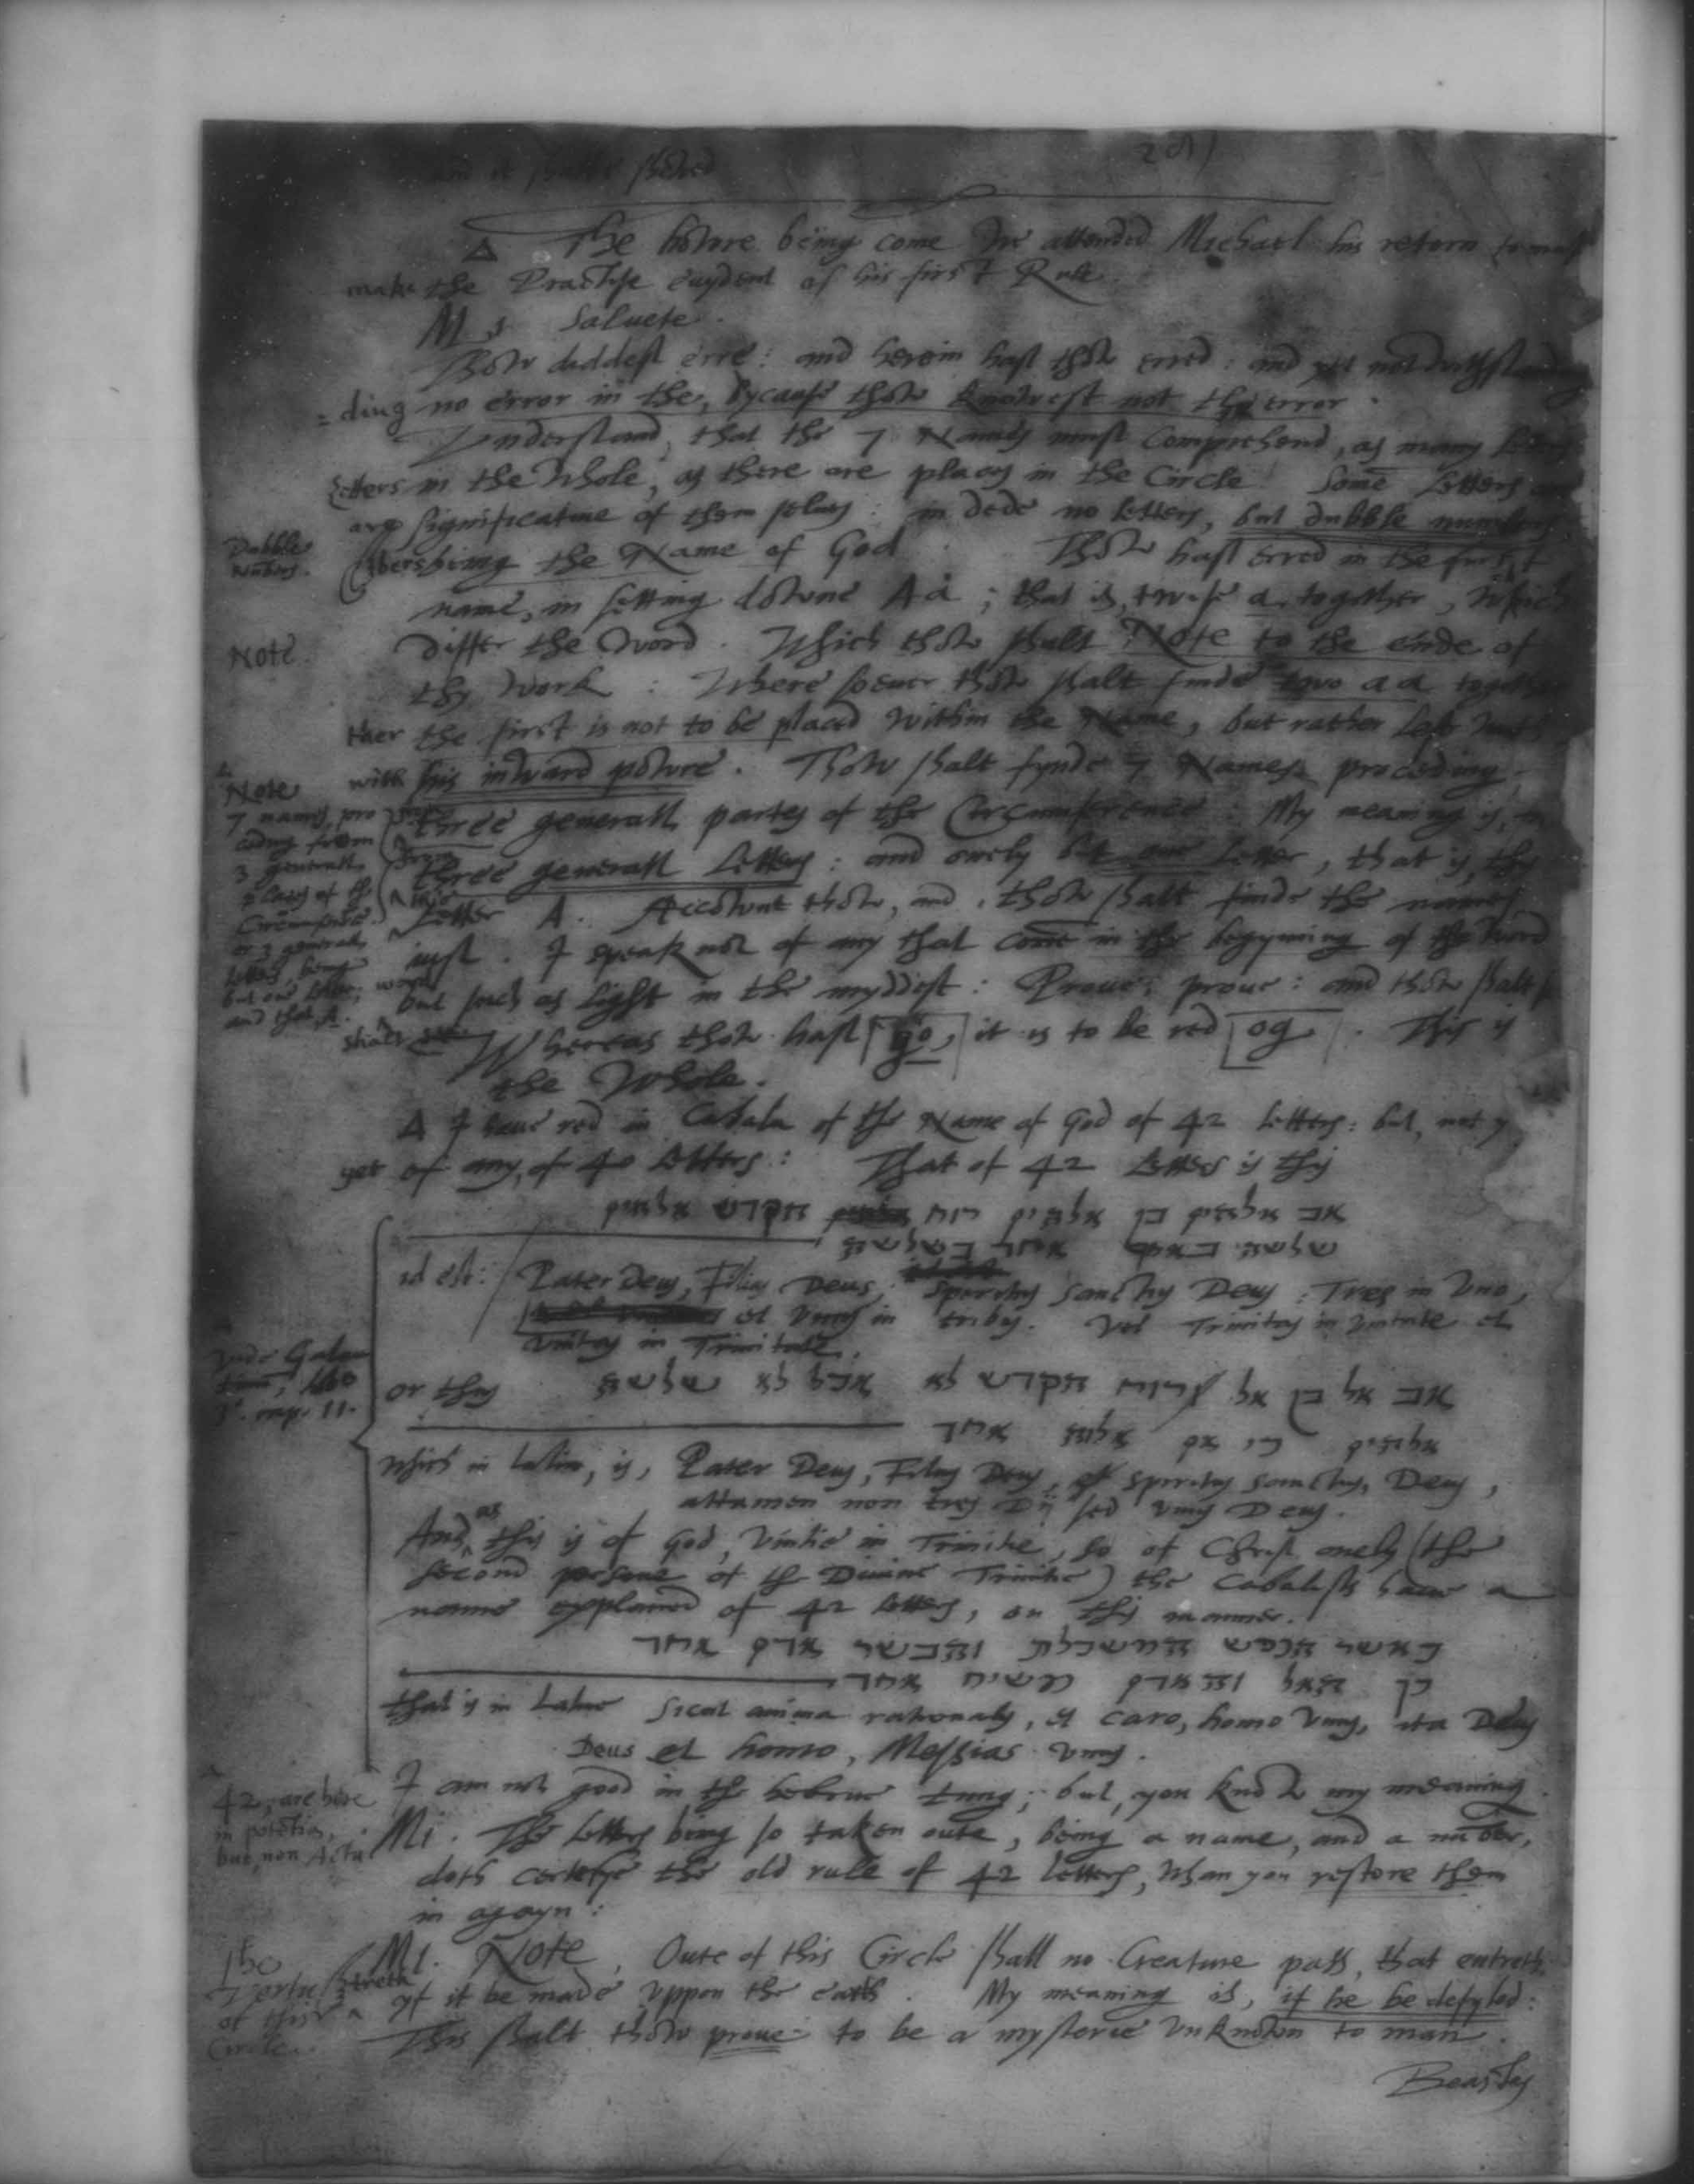 and it shalbe
Δ The howre being come we attended Michael his retorn to
make the Practise euydent of his first Rule.
Mi Saluete.
Thow diddest erre: and herein hast thow erred: and yet notwithstan
=ding no error in the, bycause thow knowest not the error.
Vnderstand, that the 7 Names must Comprehend, as many
letters in the whole, as there are places in the Circle. Some letters
are significatiue of them selues: in dede no letters, but dubble numbers
Dubble
Nũbers.
being the Name of God. Thow hast erred in the first
name, in setting downe Aa; that is, twise a together, which
Note.
differ the word. Which thow shalt Note to the ende of
thy work: Where soeuer thow shalt finde two aa togeth
ther the first is not to be placed within the Name, but rather left
with his inward powre. Thow shalt fynde 7 Names proceding
Note
7 names, pro
ceding from
3 generall
places of the
Circumference:
or 3 generall
letters, being
but one letter:
and that, A.
three generall partes of the Circumference: My meaning is,
from three generall letters: and onely but one letter, that is, this
letter A. Accownt thow, and thow shalt finde the names
iust. I speak not of any that come in the begynning of the word
but such as light in the myddest: Proue, proue: and thow shalt
Whereas thow hast go, it is to be red og. This is
the whole.
Δ I haue red in Cabala of the Name of God of 42 letters: but, not
yet of any, of 40 letters: That of 42 letters is this
אב אלהים בן אלהים רוח הקדש אלהים
שלשה באחד אחד בשלשה
id est: Pater Deus, Filius Deus, Spiritus Sanctus Deus: Tres in vno,
et vnus in tribus. Vel Trinitas in vnitate et
vnitas in Trinitate.
Vide Gala
tinū, lib
3. cap. 11.
or thus אב אל בן אל רוח הקדש לא אבל לא שלשה
אלהים כי אם אלוה אחד
which in Latin, is, Pater Deus, Filius Deus, et Spiritus sanctus, Deus,
attamen non tres Dij sed vnus Deus.
And, as this is of God, vnitie in Trinitie, so of Christ onely (the
second persone of the Diuine Trinitie) the Cabalists haue a
name explained of 42 letters, on this manner.
כאשר הנפש המשכלת והבשר אדם אחד
כן האל והאדם משיח אחד
that is in Latine Sicut anima rationalis, et caro, homo vnus, ita Deus
Deus et homo, Messias vnus.
I am not good in the hebrue tung; but, you know my meaning.
42, are here
in potētia,
but, non Actu
Mi. The letters being so taken oute, being a name, and a nũber,
doth certefye the old rule of 42 letters, whan you restore them
in agayn:
Mi. Note, Oute of this Circle shall no Creature pass, that entreth,
yf it be made vppon the earth. My meaning is, if he be defyled:
The
Vertue
of this
Circle.
This shalt thow proue to be a mysterie vnknown to man.
Beastes